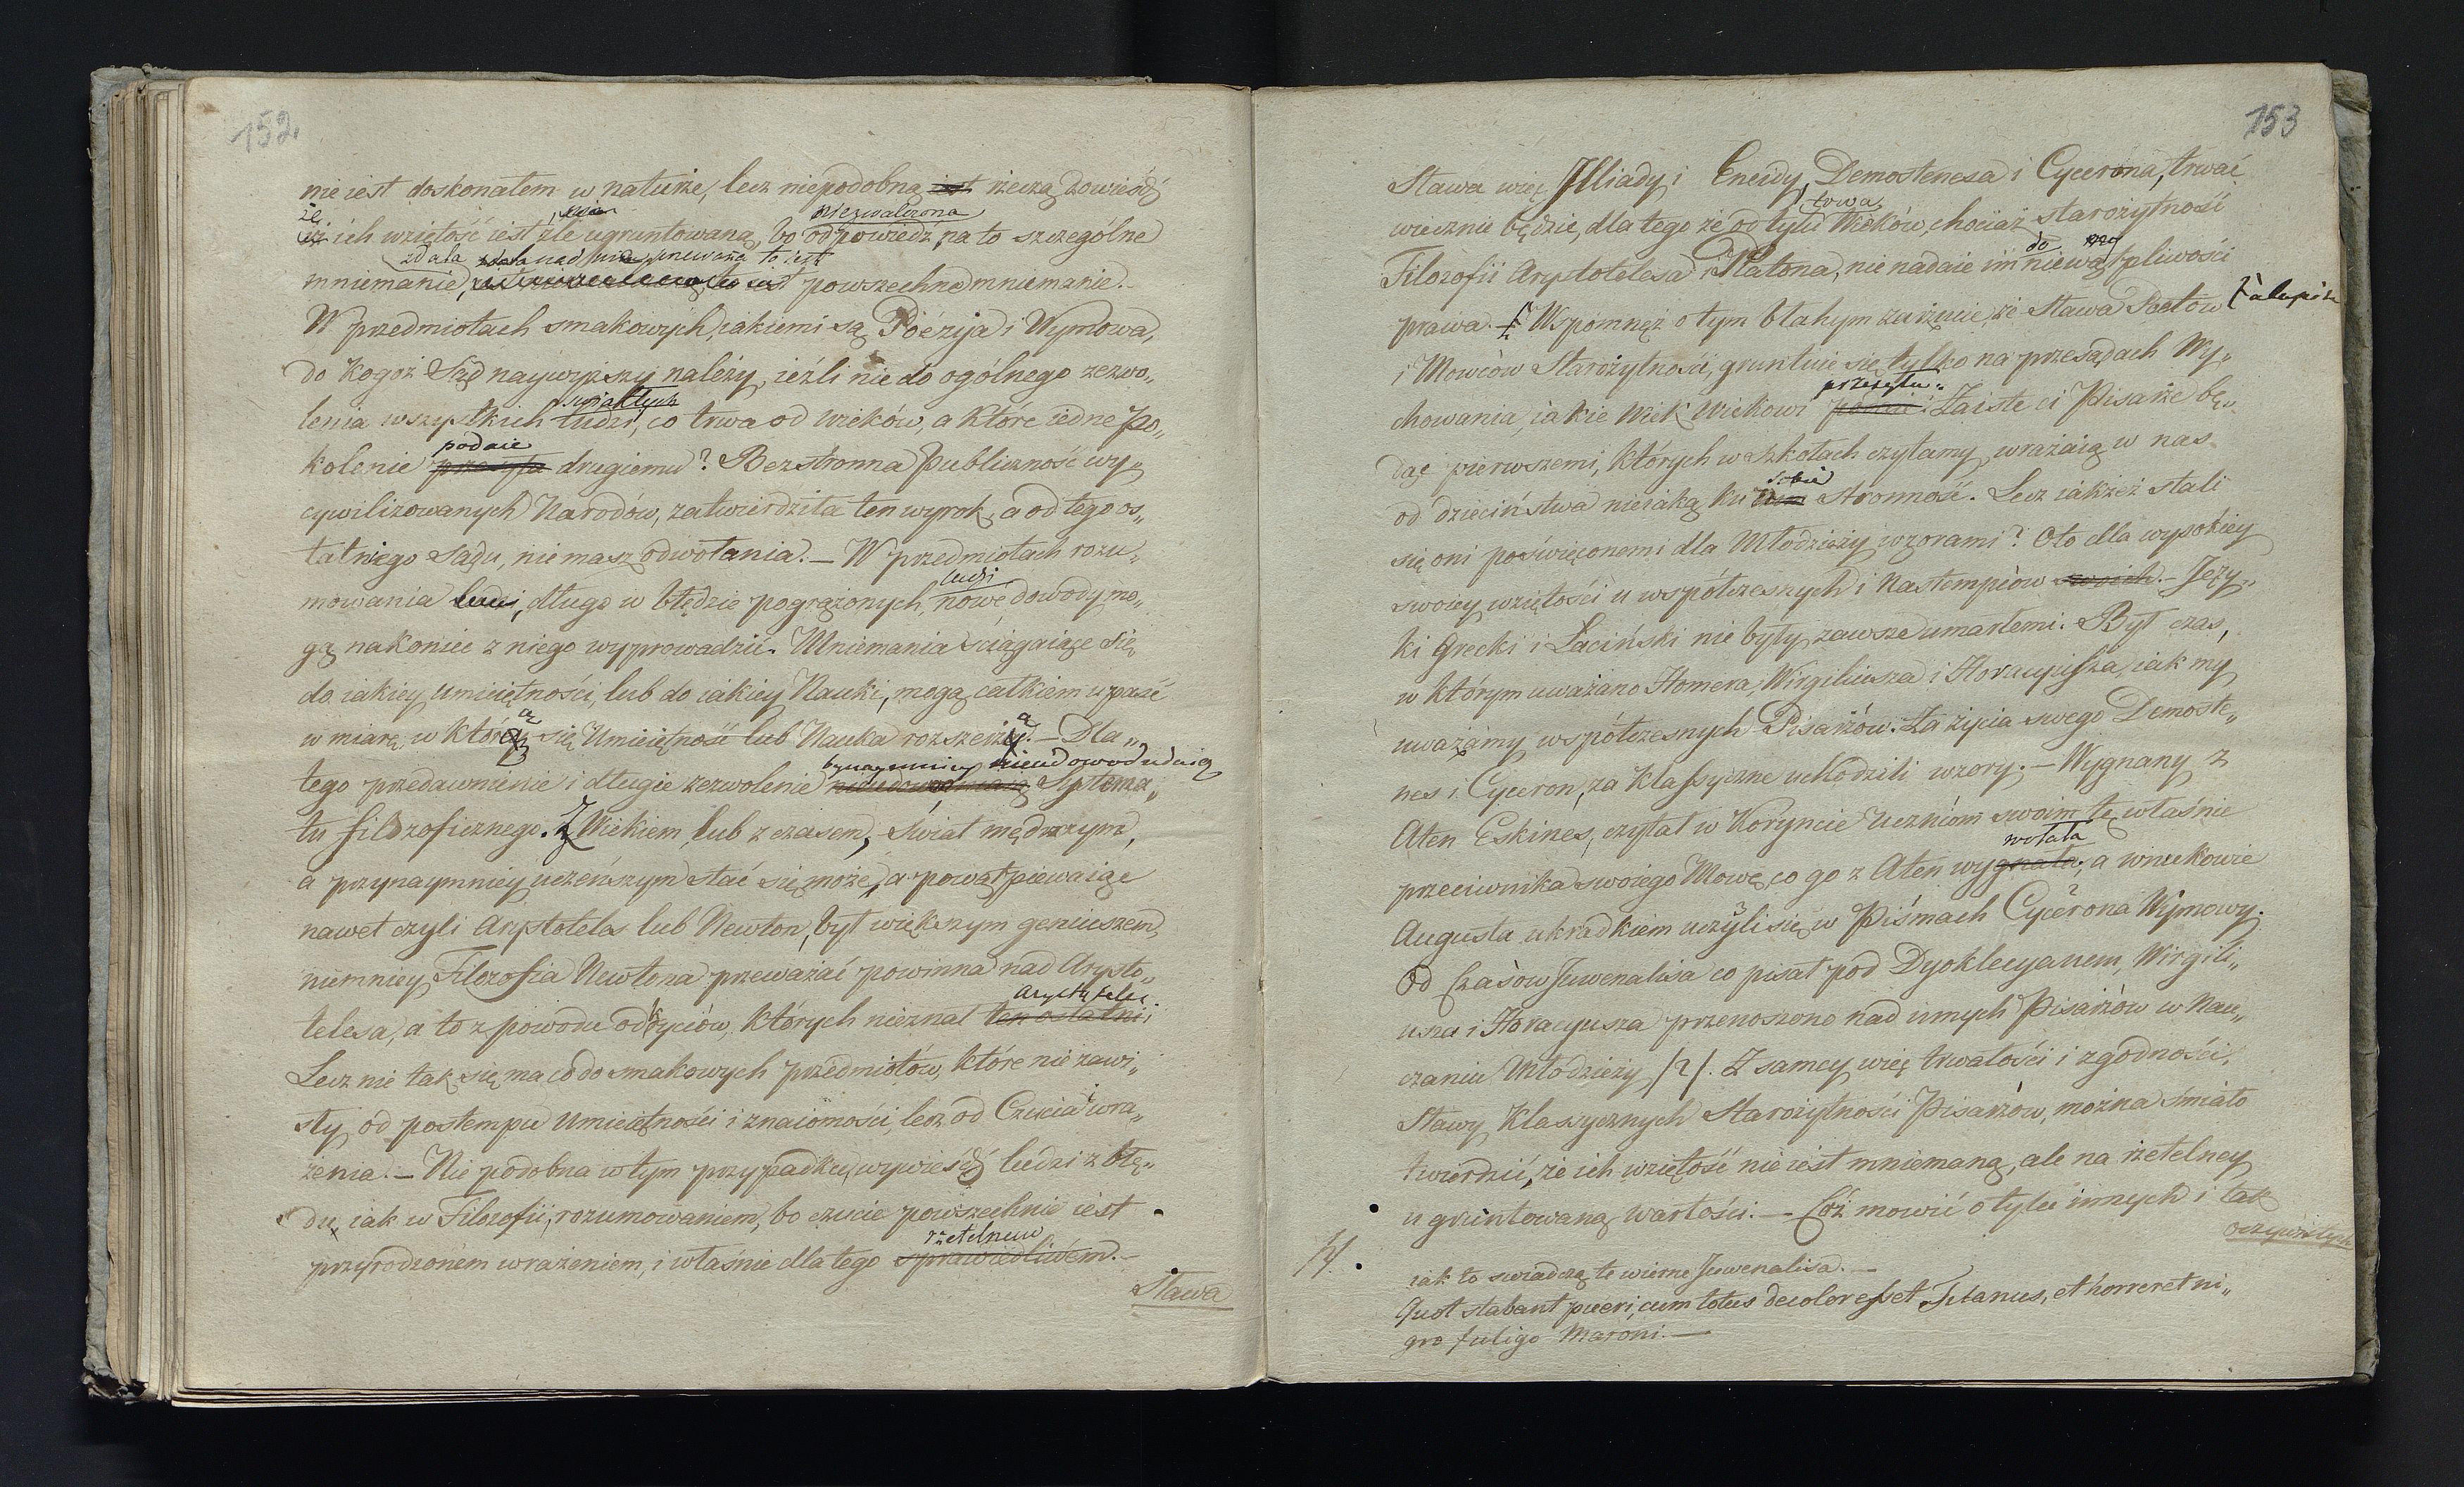 152.
nie iest doskonałem w naturze, lecz niepodobną iest rzeczą dowieśdź
że
iż ich wziętość iest źle ugruntowaną, bo odpowiedź na to szczególne
niezwalczona
mniemanie, to iest powszechne mniemanie.
W przedmiotach smakowych, iakiemi są Poézija i Wymowa,
do kogoż Sąd naywyższy należy, ieźli nie do ogólnego zezwo„
światłych
lenia wszystkich ludzi, co trwa od wieków, a które iedne Po„
podaie
kolenie przesyła drugiemu? Bezstronna Publiczność wy„
cywilizowanych Narodów, zatwierdziła ten wyrok, a od tego os„
tatniego Sądu, nie masz odwołania. — W przedmiotach rozu„
ludzi
mowania ludzi, długo w błędzie pogrążonych, nowe dowody mo„
gą nakoniec z niego wyprowadzić. Mniemania ściągaiące się
do iakiey Umieiętności, lub do iakiey Nauki, mogą całkiem upaść
w miarę, w którą się Umieiętność lub Nauka rozszerzy. — Dla„
bynaymniey nieudowodniaią
tego przedawnienie i długie zezwolenie nieudowodniaią Systema„
tu filozoficznego. Z Wiekiem, lub z czasem, świat mędrszym,
a przynaymniey uczeńszym stać się może, a powątpiewaiąc
nawet czyli Arystoteles lub Newton, był większym geniuszem,
niemniey Filozofia Newtona przeważać powinna nad Arysto„
Arystoteles
telesa, a to z powodu odkryciów, których nieznał ten ostatni;
Lecz nie tak się ma co do smakowych przedmiotów, które nie zawi„
sły od postempu Umieiętności i znaiomości, lecz od Czucia i wra„
żenia. — Nie podobna w tym przypadku, wywieśdź ludzi z błę„
du, iak w Filozofii, rozumowaniem, bo czucie powszechnie iest
rzetelnem
przyrodzonem wrażeniem, i właśnie dla tego sprawiedliwém. —
Sława
153
Sława więc Jlliady i Eneidy, Demostenesa i Cycerona, trwać
wiecznie będzie, dla tego że od tylu Wieków trwa, chociaż starożytność
Filozofii Arystotelesa i Platona, nie nadaie im do niewątpliwości
prawa. — Wspomnęż o tym błahym zarzucie, że Sława Poetów
i Mowców Starożytności, gruntuie się tylko na przesądach Wy„
przesyła„
chowania, iakie Wiek Wiekowi podaie. Zaiste ci Pisarze bę„
dąc pierwszemi, których w szkołach czytamy, wrażaią w nas
sobie
od dzieciństwa nieiaką ku stronność. Lecz iakżeż stali
się oni poświęconemi dla Młodzieży wzorami? Oto dla wysokiey
swoiey wziętości u współczesnych i Następców swoich. — Języ„
ki Grecki i Łaciński nie były zawsze umarłemi. Był czas,
w którym uważano Homera, Wirgiliusza i Horacyusza, iak my
uważamy współczesnych Pisarzów. Za życia swego Demoste„
nes i Cyceron, za klassyczne uchodzili wzory. — Wygnany z
Aten Eskines, czytał w Koryncie Uczniom swoim tę właśnie
wołała
przeciwnika swoiego Mowę, co go z Aten wygnała, a wnukowie
Augusta ukradkiem uczyli się w Pismach Cycerona Wymowy.
Od Czasow Juwenalisa co pisał pod Dyoklecyanem, Wirgili„
usza i Horacyusza przenoszono nad innych Pisarzów w Nau„
czaniu Młodzieży /2/. Z samey więc trwałości i zgodności,
Sławy klassycznych Starożytności Pisarzów, można śmiało
twierdzić, że ich wziętość nie iest mniemaną, ale na rzetelney
ugruntowaną wartości. — Cóż mowić o tylu innych i tak
oczywistych
iak to swiadczą te wiersze Juwenalisa. —
Quot stabant pueri, cum totus decolor esset Flanus, et hœrreret ni„
gro fuligo Maroni. —